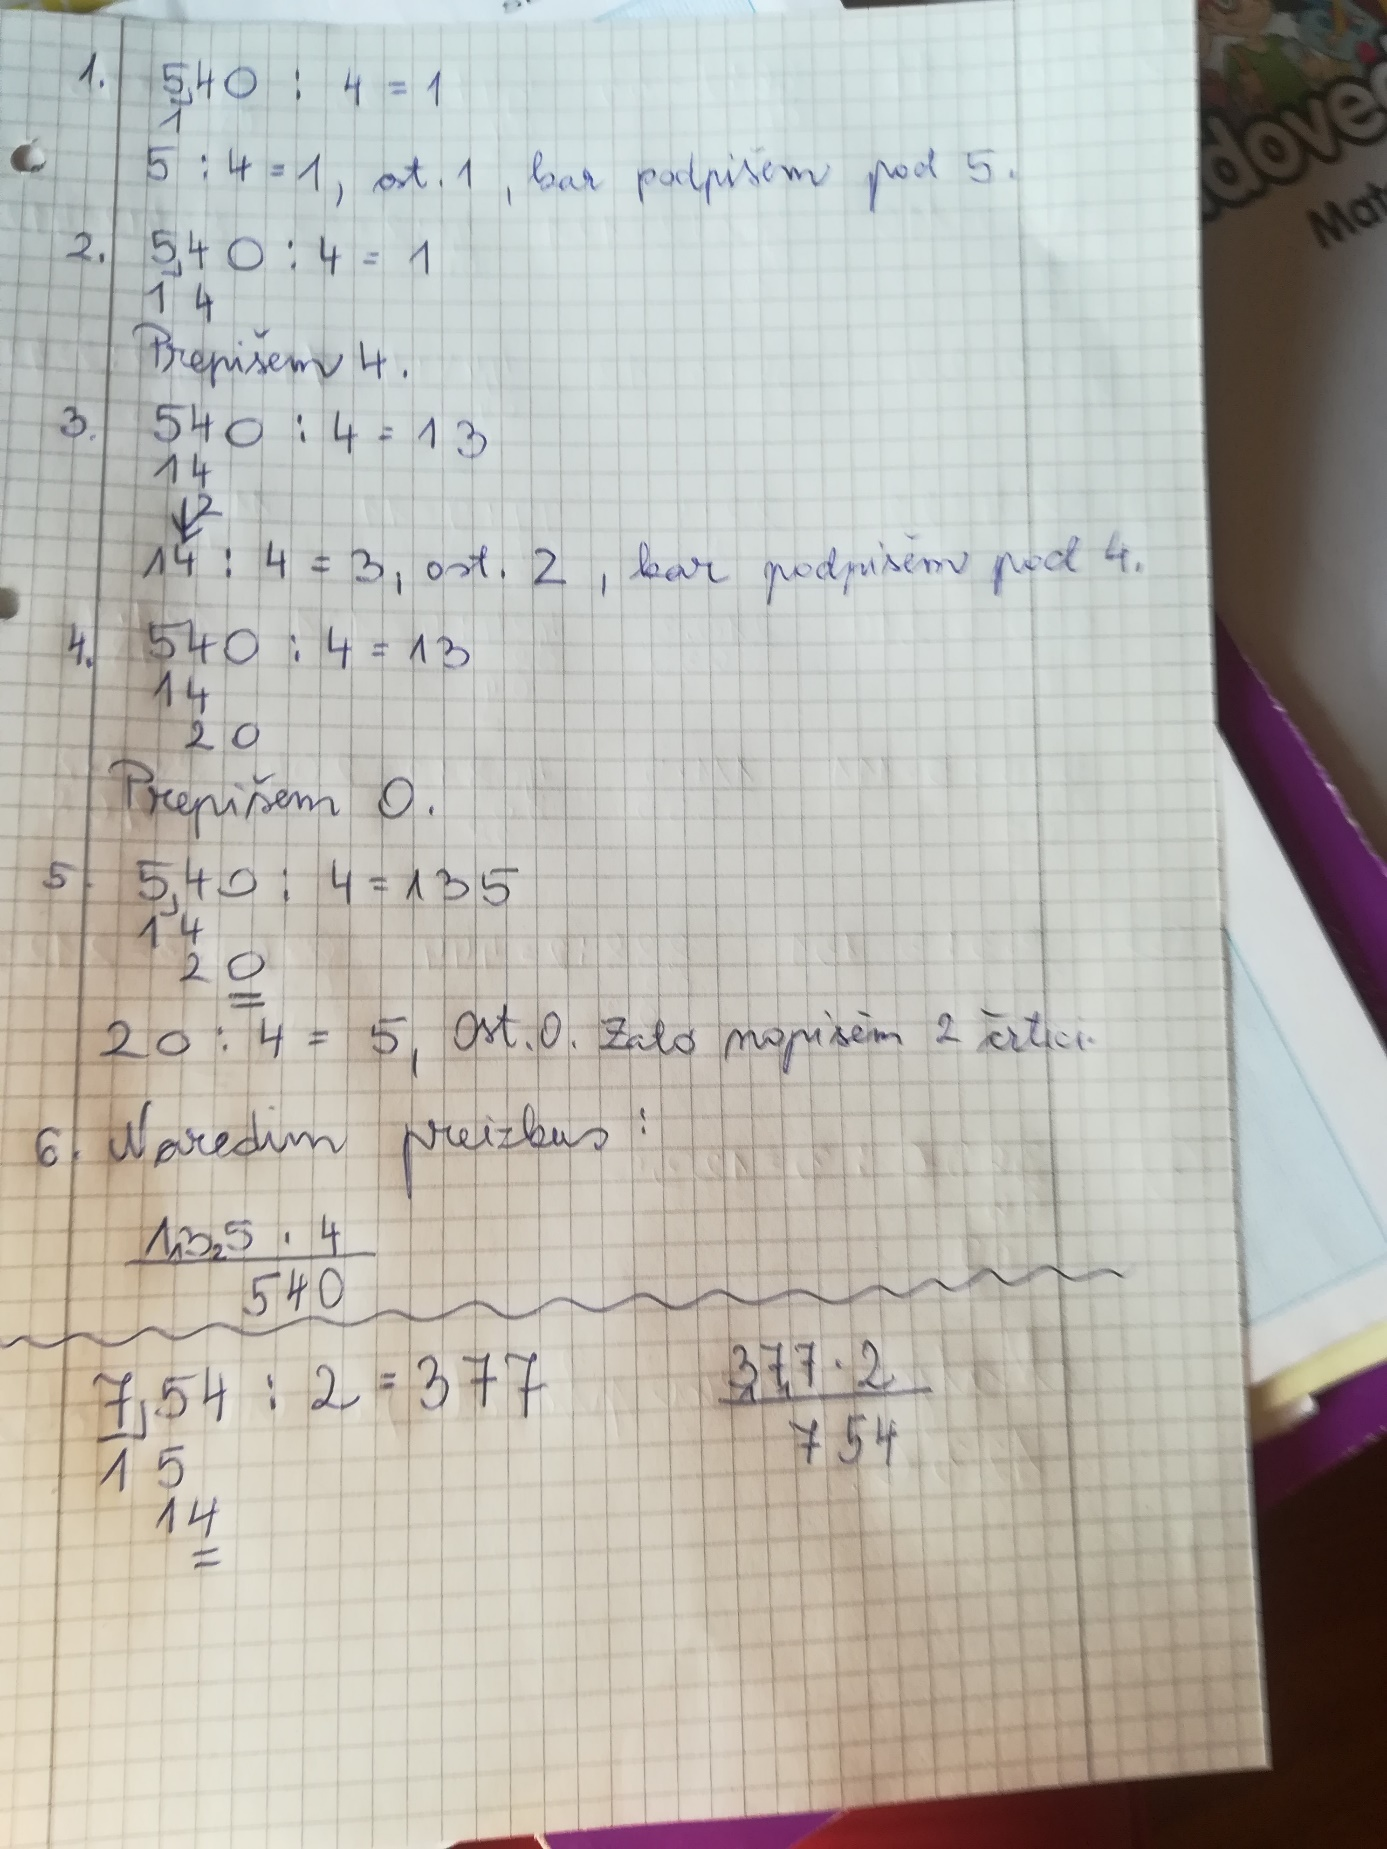 1. 540 : 4 = 1
1
5 : 4 = 1, ost. 1, kar podpišem pod 5.
2. 540 : 4 = 1
14
Prepišem 4.
3. 540 : 4 = 13
14
2
14 : 4 = 3, ost. 2, kar podpišem pod 4.
4. 540 : 4 = 13
14
20
Prepišem 0.
5. 540 : 4 = 135
14
20
20 : 4 = 5, Ost. 0. Zato napišem 2 črtici.
6. Naredim preizkus:
135 · 4
540
754 : 2 = 377
15
14
377 · 2
754
doved
Mat